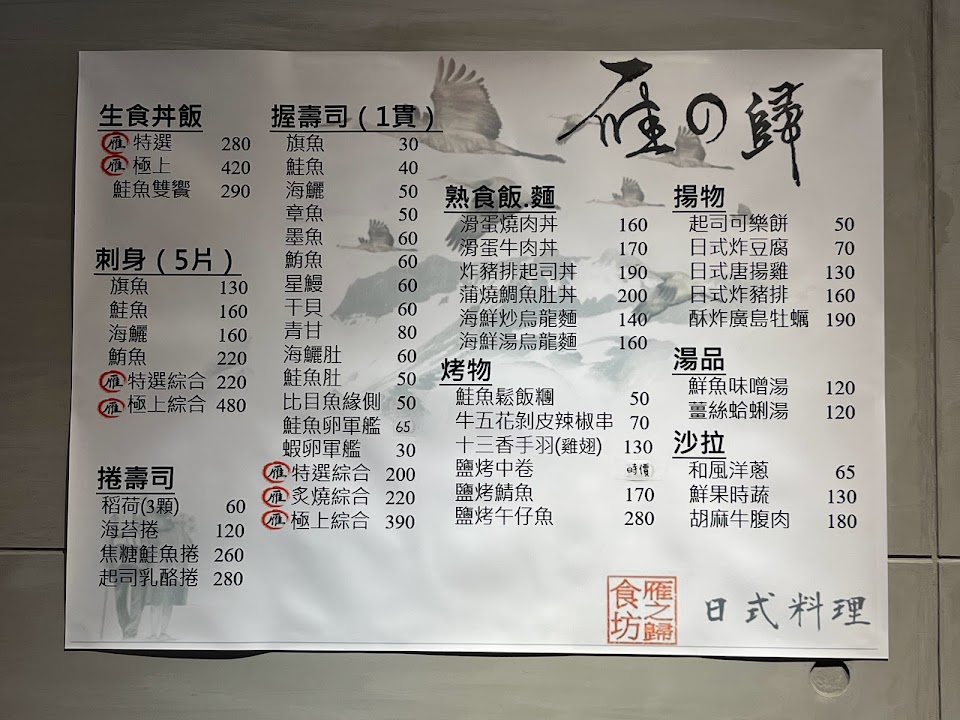 雁の歸
生食丼飯
雁 特選 280
雁 極上 420
鮭魚雙饗 290
刺身（5片）
旗魚 130
鮭魚 160
海鱺 160
鮪魚 220
雁 特選綜合 220
雁 極上綜合 480
捲壽司
稻荷(3顆) 60
海苔捲 120
焦糖鮭魚捲 260
起司乳酪捲 280
握壽司（1貫）
旗魚 30
鮭魚 40
海鱺 50
章魚 50
墨魚 60
鮪魚 60
星鰻 60
干貝 60
青甘 80
海鱺肚 60
鮭魚肚 50
比目魚緣側 50
鮭魚卵軍艦 65
蝦卵軍艦 30
雁 特選綜合 200
雁 炙燒綜合 220
雁 極上綜合 390
熟食飯.麵
滑蛋燒肉丼 160
滑蛋牛肉丼 170
炸豬排起司丼 190
蒲燒鯛魚肚丼 200
海鮮炒烏龍麵 140
海鮮湯烏龍麵 160
烤物
鮭魚鬆飯糰 50
牛五花剝皮辣椒串 70
十三香手羽(雞翅) 130
鹽烤中卷 時價
鹽烤鯖魚 170
鹽烤午仔魚 280
揚物
起司可樂餅 50
日式炸豆腐 70
日式唐揚雞 130
日式炸豬排 160
酥炸廣島牡蠣 190
湯品
鮮魚味噌湯 120
薑絲蛤蜊湯 120
沙拉
和風洋蔥 65
鮮果時蔬 130
胡麻牛腹肉 180
雁之歸
食坊
日式料理